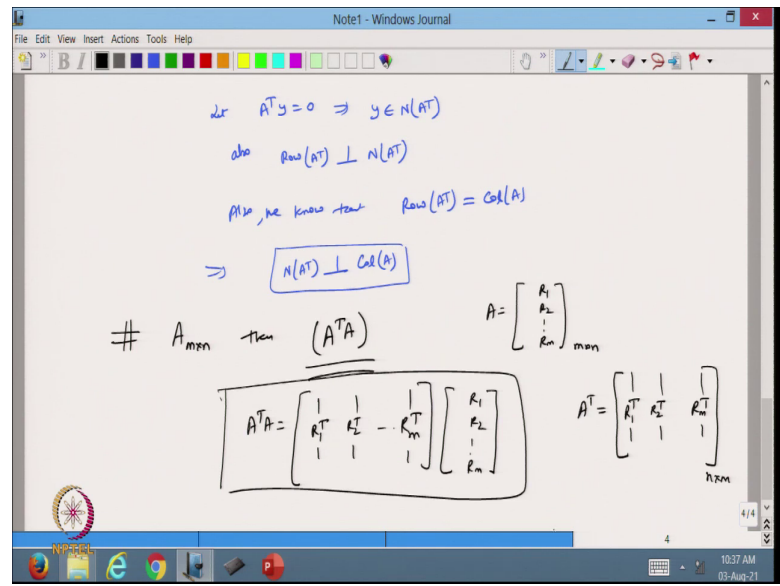 Note1 - Windows Journal
File Edit View Insert Actions Tools Help
Let A^T y = 0 ⇒ y ∈ N(A^T)
also Row(A^T) ⊥ N(A^T)
Also, we know that Row(A^T) = Col(A)
⇒ N(A^T) ⊥ Col(A)
# A_{m×n} then (A^T A)
A = [ R_1 R_2 ⋮ R_m ]_{m×n}
A^T A = [ R_1^T R_2^T -- R_m^T ] [ R_1 R_2 ⋮ R_m ]
A^T = [ R_1^T R_2^T R_m^T ]_{n×m}
4/4
4
NPTEL
10:37 AM
03-Aug-21